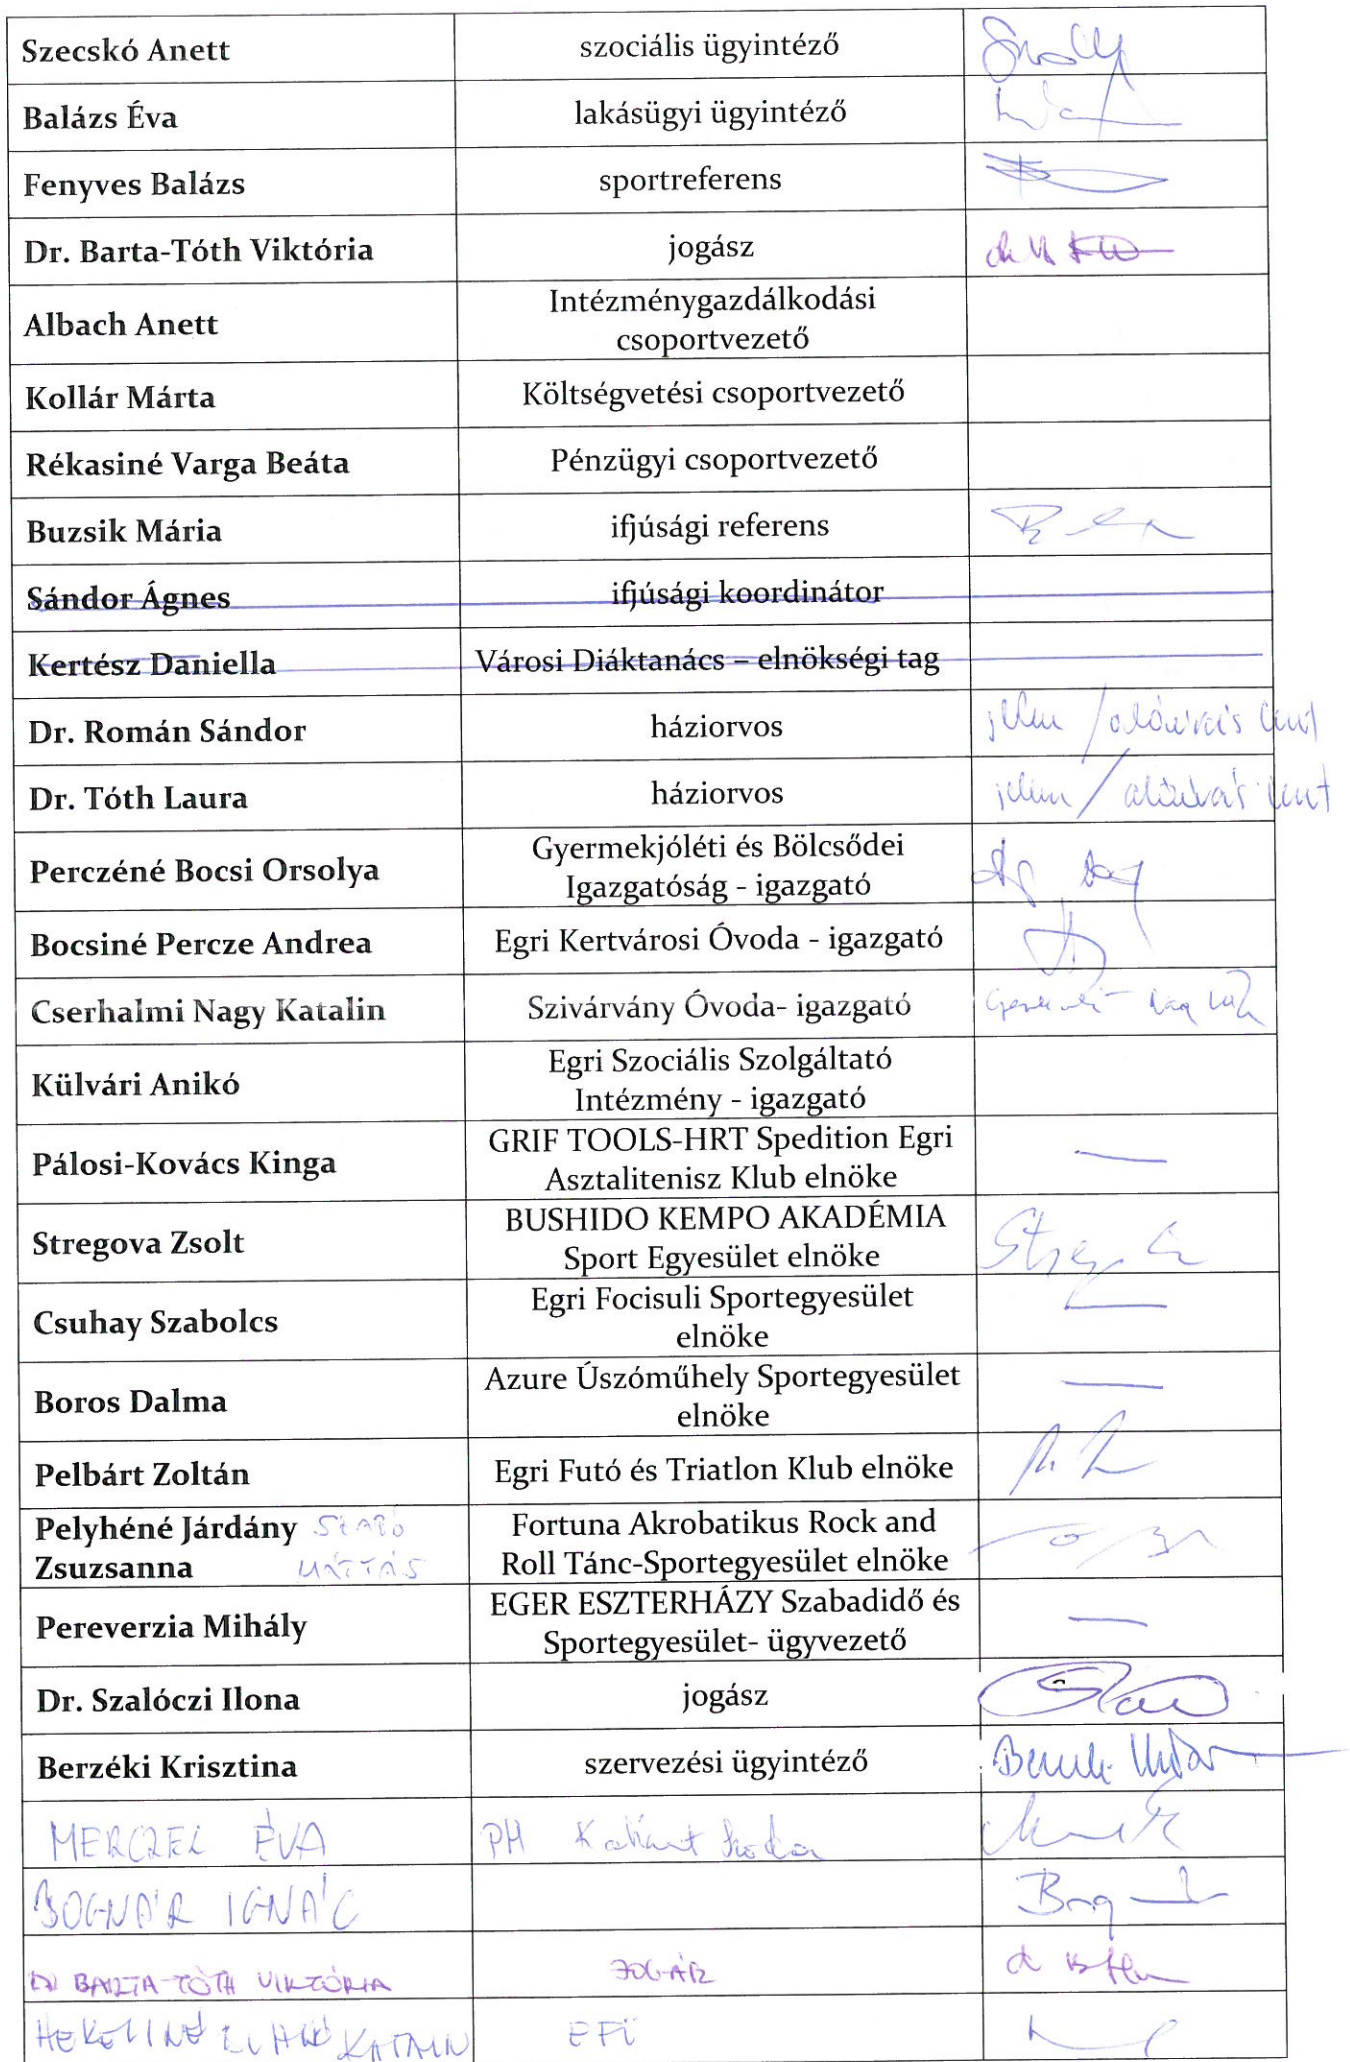 Szecskó Anett szociális ügyintéző
Balázs Éva lakásügyi ügyintéző
Fenyves Balázs sportreferens
Dr. Barta-Tóth Viktória jogász
Albach Anett Intézménygazdálkodási
csoportvezető
Kollár Márta Költségvetési csoportvezető
Rékasiné Varga Beáta Pénzügyi csoportvezető
Buzsik Mária ifjúsági referens
Sándor Ágnes ifjúsági koordinátor
Kertész Daniella Városi Diáktanács – elnökségi tag
Dr. Román Sándor háziorvos jelen / aláírás lent
Dr. Tóth Laura háziorvos jelen / aláírás lent
Perczéné Bocsi Orsolya Gyermekjóléti és Bölcsődei
Igazgatóság - igazgató
Bocsiné Percze Andrea Egri Kertvárosi Óvoda - igazgató
Cserhalmi Nagy Katalin Szivárvány Óvoda- igazgató
Külvári Anikó Egri Szociális Szolgáltató
Intézmény - igazgató
Pálosi-Kovács Kinga GRIF TOOLS-HRT Spedition Egri
Asztalitenisz Klub elnöke
Stregova Zsolt BUSHIDO KEMPO AKADÉMIA
Sport Egyesület elnöke
Csuhay Szabolcs Egri Focisuli Sportegyesület
elnöke
Boros Dalma Azure Úszóműhely Sportegyesület
elnöke
Pelbárt Zoltán Egri Futó és Triatlon Klub elnöke
Pelyhéné Járdány SZABÓ Fortuna Akrobatikus Rock and
Zsuzsanna MÁTYÁS Roll Tánc-Sportegyesület elnöke
Pereverzia Mihály EGER ESZTERHÁZY Szabadidő és
Sportegyesület- ügyvezető
Dr. Szalóczi Ilona jogász
Berzéki Krisztina szervezési ügyintéző
MERCZEL ÉVA PH Kabinet Iroda
BOGNÁR IGNÁC
DR BARTA-TÓTH VIKTÓRIA JOGÁSZ
KATALIN EFI